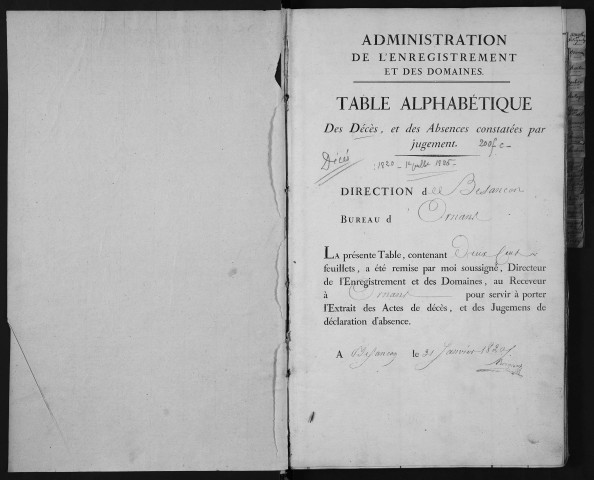 ADMINISTRATION
DE L'ENREGISTREMENT
ET DES DOMAINES.
TABLE ALPHABÉTIQUE
Des Décès, et des Absences constatées par
jugement. 200 f
Décès
1820 - 1er juillet 1825
DIRECTION de Besançon
BUREAU d'Ornans
LA présente Table, contenant Deux Cents
feuillets, a été remise par moi soussigné, Directeur
de l'Enregistrement et des Domaines, au Receveur
à Ornans pour servir à porter
l'Extrait des Actes de décès, et des Jugemens de
déclaration d'absence.
A Besançon le 31 Janvier